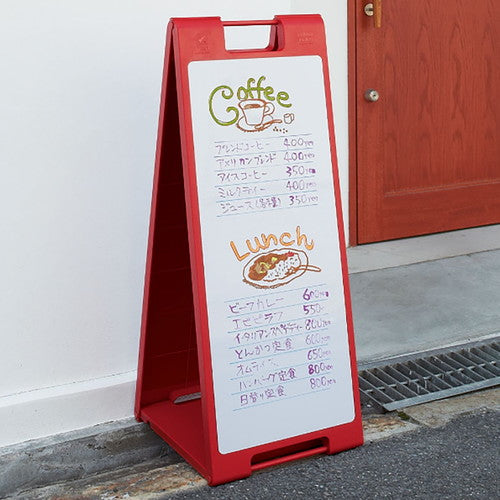 Coffee
ブレンドコーヒー 400yen
アメリカンブレンド 400yen
アイスコーヒー 350yen
ミルクティー 400yen
ジュース(各種) 350yen
Lunch
ビーフカレー 600yen
エビピラフ 550yen
イタリアンスパゲティー 800yen
とんかつ定食 600yen
オムライス 650yen
ハンバーグ定食 800yen
日替り定食 800yen